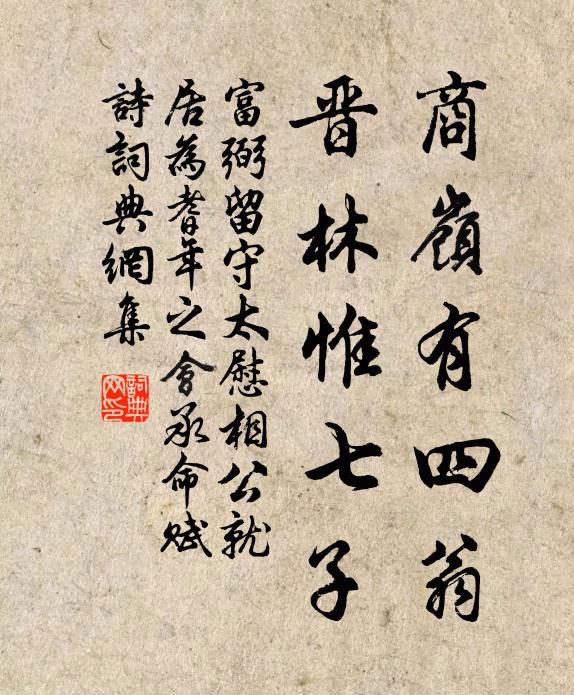 商嶺有四翁
晋林惟七子
富弼留守太慰相公就
居為耆年之會承命賦
詩詞典網集
詞典網印